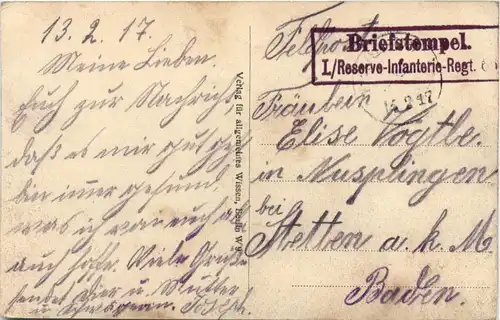 13.2.17.
Meine Lieben.
Euch zur Nachricht
daß es mir gut geht
bin imer gesund,
was ich von euch al
auch hoffe. Viele Grüße
sendet Dier u. Mutter
u. Schwägerin. Joseph.
Verlag für allgemeines Wissen, Berlin W
Feldpost
Briefstempel.
I./Reserve-Infanterie-Regt.
13 2 17
Fräulein
Elise Vogtle.
in Nusplingen
bei
Stetten a. k. M
Baden.